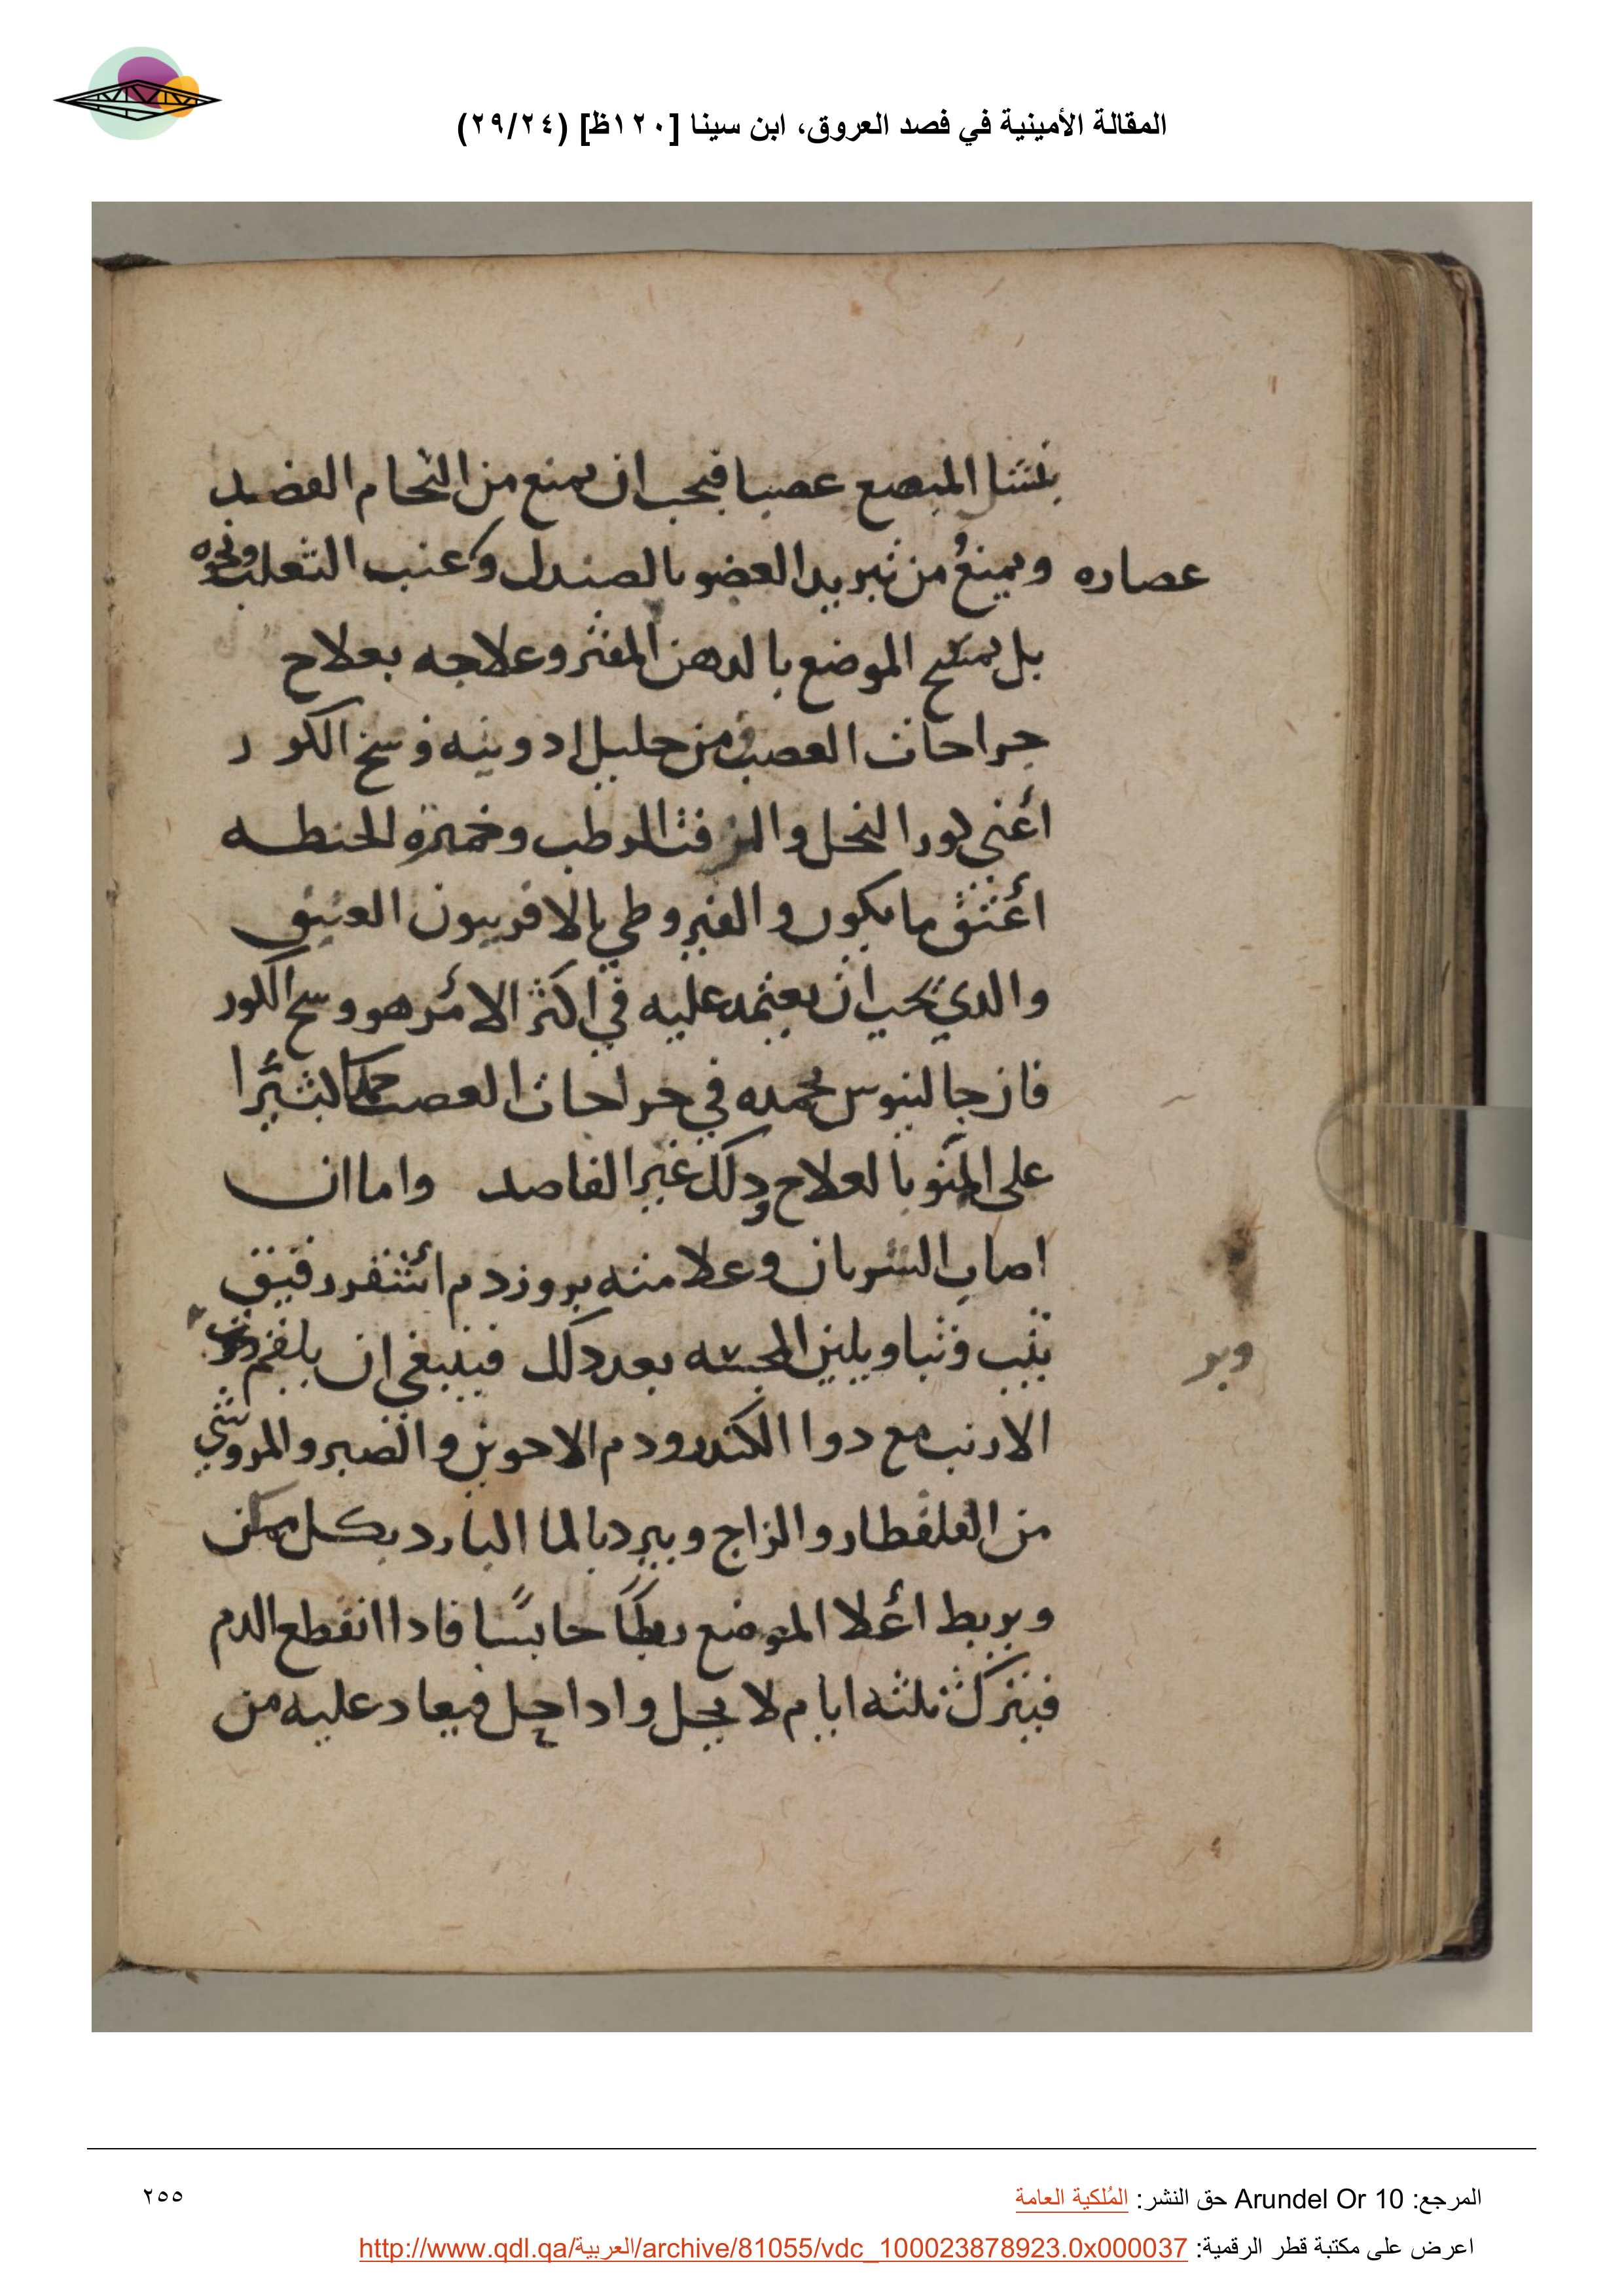 المقالة الأمينية في فصد العروق، ابن سينا [١٢٠ظ] (٢٩/٢٤)
المبضع عصبا فيجب ان يمنع من التحام الفصد
عصاره ويمنع من تبريد العضو بالصندل وعنب الثعلب ونحوه
بل يمسح الموضع بالدهن المفتر وعلاجه بعلاج
جراحات العصب من جليل ادويته وسخ الكور
أعني كور النحل والزفت الرطب وخميرة الحنطه
أعتق ما يكون والقيروطي بالافربيون العتيق
والدي يجب ان يعتمد عليه في اكثر الامر هو وسخ الكور
فان جالينوس يحمده في جراحات العصب حمدا كثيرا
على بالعلاج ودلك غير الفاصد واما ان
اصاب الشريان وعلامته بروز دم أشقر رقيق
يثب وثبا ويلين المجسه بعد دلك فينبغي ان يلقم
وبر
الارنب مع دوا الكندر ودم الاخوين والصبر والمر وشي
من القلقطار والزاج ويبرد بالما البارد بكل ممكن
ويربط أعلا الموضع ربطًا حابسًا فادا انقطع الدم
فيترك ثلثه ايام لا يحل وادا حل فيعاد عليه من
المرجع: Arundel Or 10 حق النشر: المُلكية العامة
٢٥٥
اعرض على مكتبة قطر الرقمية: http://www.qdl.qa/العربية/archive/81055/vdc_100023878923.0x000037